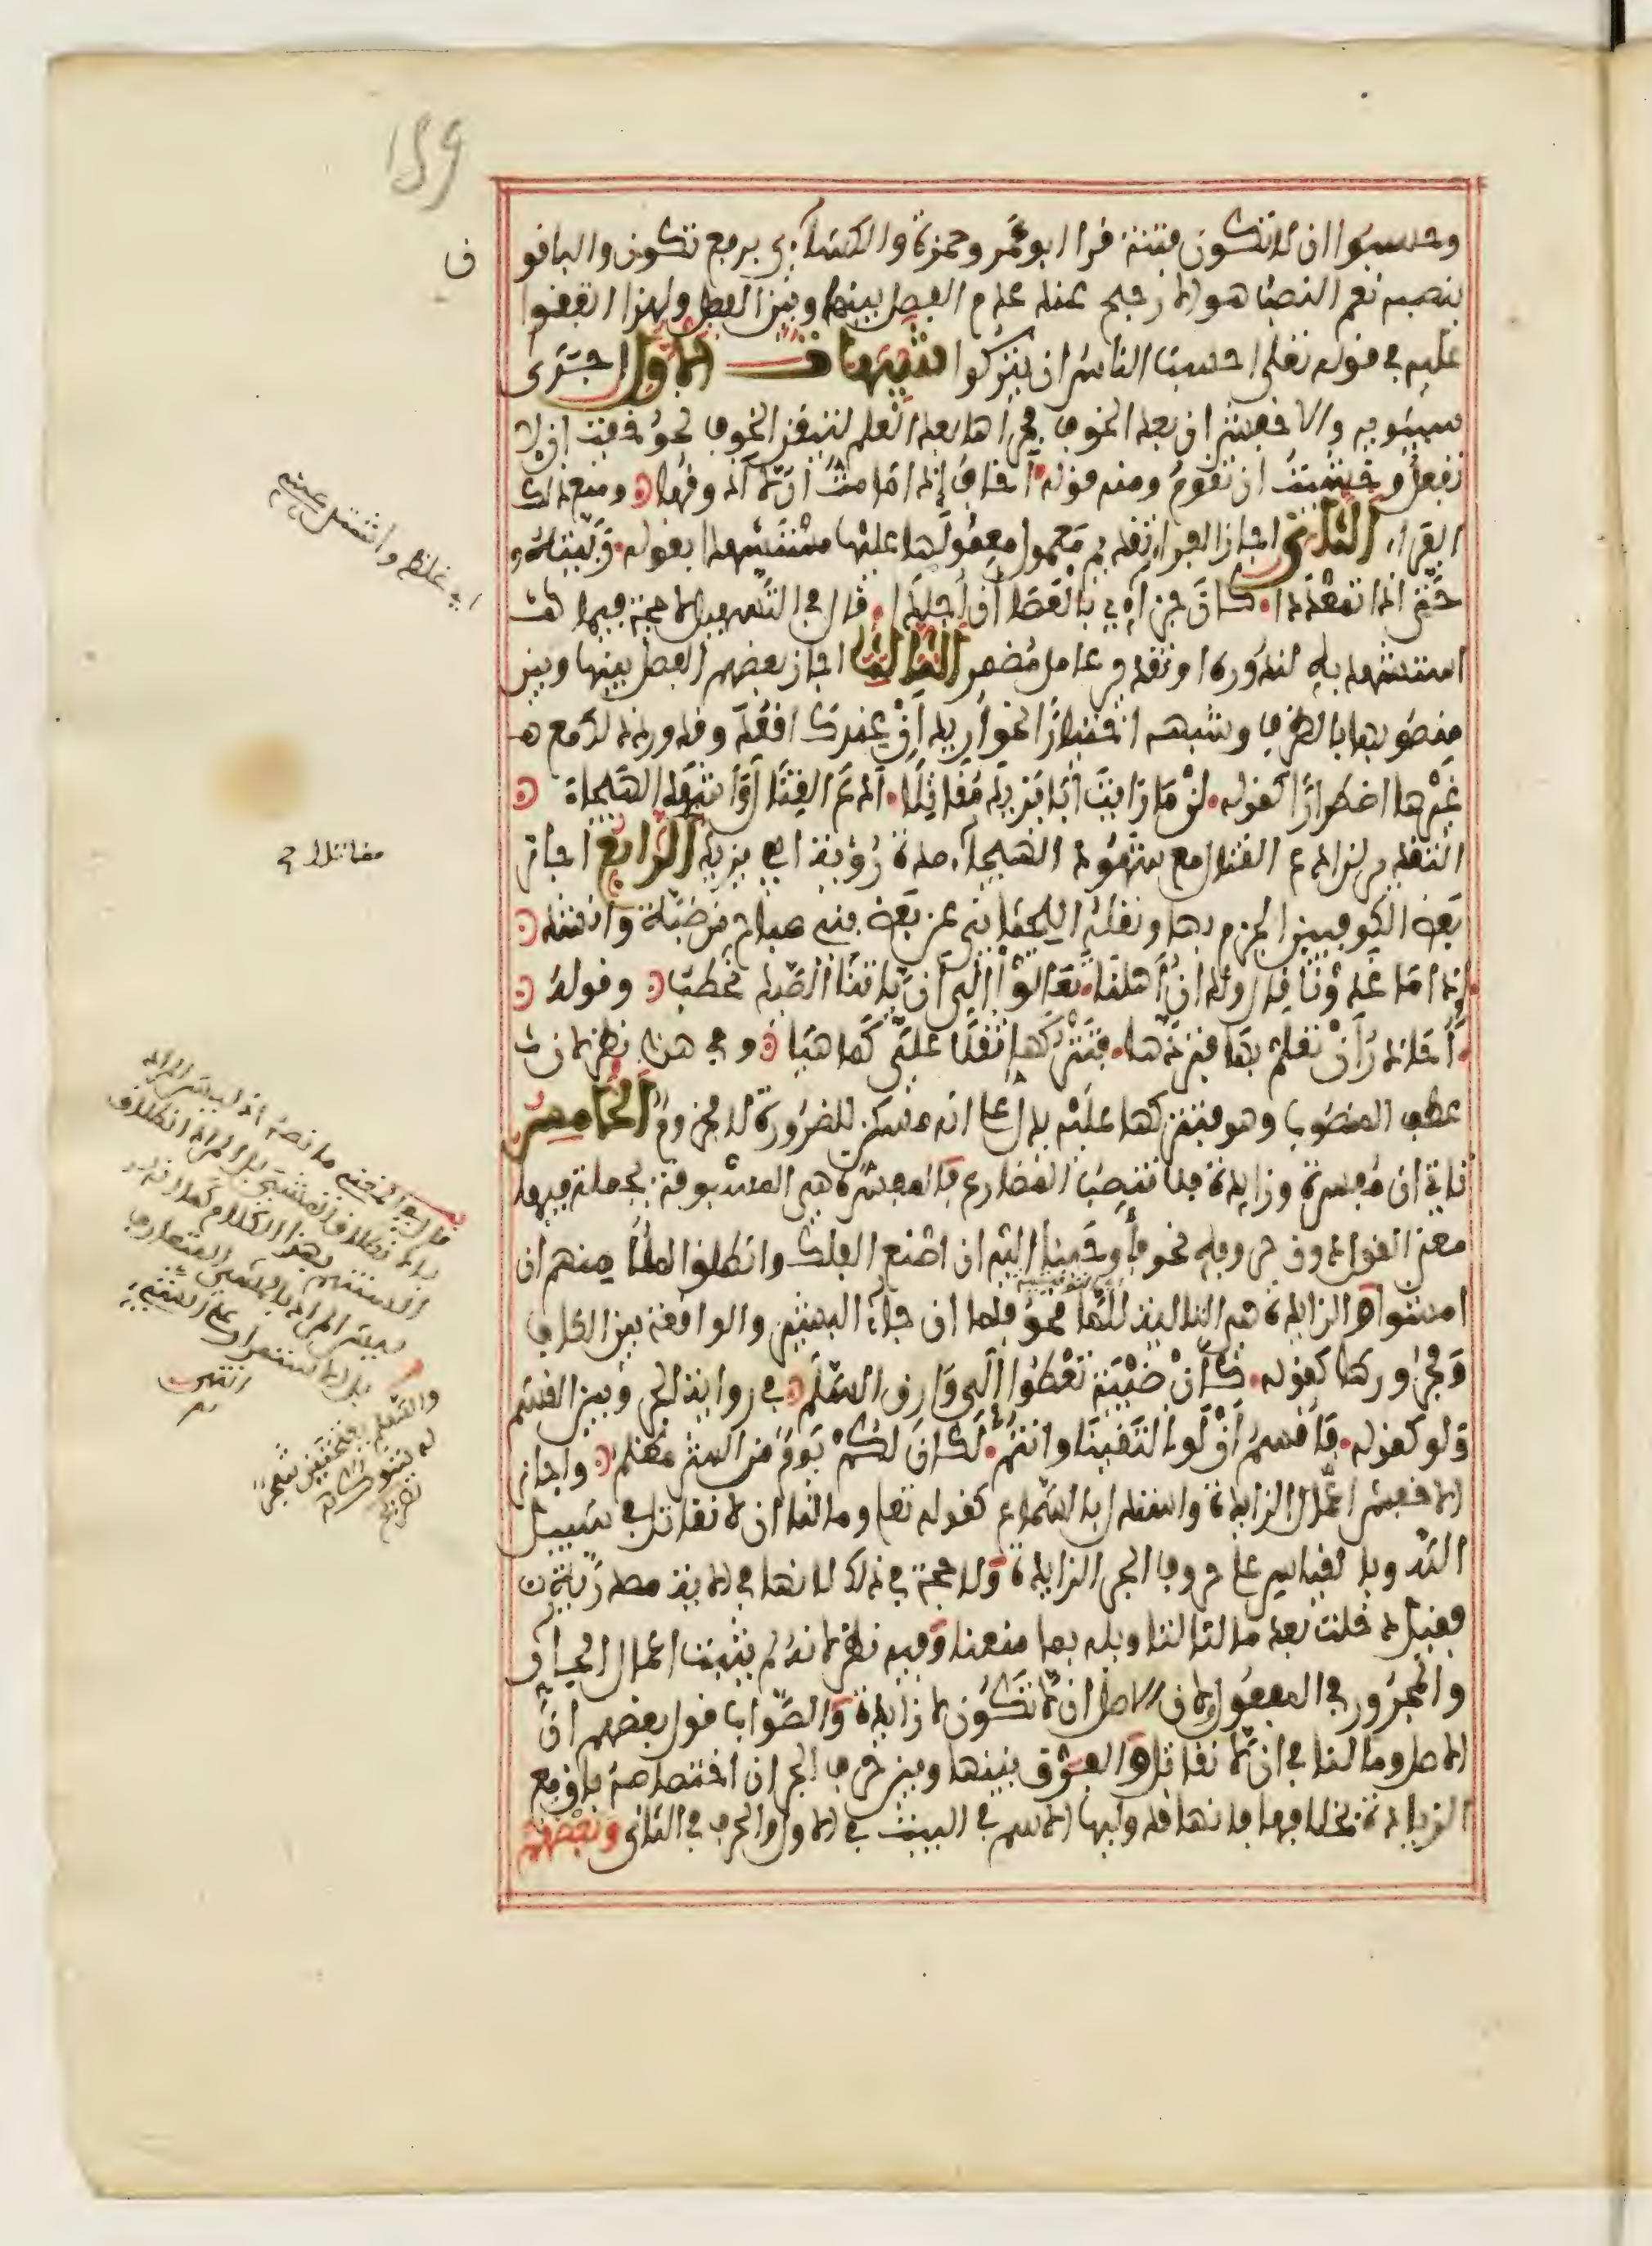 وحسبوا ان لا تكون فتنة قرا ابو عمر وحمزة والكساءي برفع تكون والباقو
ن
بنصبه نعم النصب هو الارجح عند عدم الفصل بينها وبين الفعل ولهذا اتفقوا
عليه في قوله تعلى احسب الناس ان يتركوا تنبيهات الاول اجرى
سيبويه والاخفش ان بعد الخوف مجراها بعد العلم لتيقن الخوف نحو خفت ان لا
تفعل وخشيت ان تقوم ومنه قوله اخاف اذا ما مت ان لا اذوقها ومنع ذلك
الفراء الثاني اجاز الفراء تقديم معمول معمولها عليها مستشهدا بقوله ربيته
حتى اذا تمعددا كان جزاءي بالعصا ان اجلدا قال في التسهيل لا حجة فيما
استشهد به لندوره او تقدير عامل مضمر الثالث اجاز بعضهم الفصل بينها وبين
منصوبها بالظرف وشبهه اختيارا نحو اريد ان عندك اقعد وقد ورد ذلك مع
غيرها اضطرارا كقوله لن ما رايت ابا يزيد مقاتلا ادع القتال واشهد الهيجاء
التقدير لن ادع القتال مع شهود الهيجاء مدة رؤية ابي يزيد الرابع اجاز
بعض الكوفيين الجزم بها ونقله اللحياني عن بعض بني صباح من ضبة وانشد
اذا ما غدونا قال ولدان اهلنا تعالوا الى ان ياتنا الصيد نحطب وقوله
احاذر ان تعلم بها فتردها فتتركها ثقلا علي كما هيا وفي هذا نظر لان
عطف المنصوب وهو فتتركها عليه يدل على انه مسكن للضرورة لا مجزوم الخامس
تاتي ان مفسرة وزايدة فلا تنصب المضارع فالمفسرة هي المسبوقة بجملة فيها
معنى القول دون حروفه نحو فاوحينا اليه ان اصنع الفلك وانطلق الملأ منهم ان
امشوا والزايدة هي التالية للما نحو فلما ان جاء البشير والواقعة بين الكاف
ومجرورها كقوله كان ظبية تعطوا الى وارق السلم في رواية الجر وبين القسم
ولو كقوله فاقسم ان لو التقينا وانتم لكان لكم يوم من الشر مظلم واجاز
الاخفش اعمال الزايدة واستدل بالسماع كقوله تعا وما لنا ان لا نقاتل في سبيل
الله وبالقياس على حروف الجر الزايدة ولا حجة في ذلك لانها في الاية مصدرية
فقيل دخلت بعد ما لنا لتاوله بما منعنا وفيه نظر لانه لم يثبت اعمال الجار
والمجرور في المفعول لان الاصل ان لا تكون لا زايدة والصواب قول بعضهم ان
الاصل وما لنا في ان لا نقاتل والفرق بينها وبين حرف الجر ان اختصاصه باق مع
الزيادة بخلافها فانها قد وليها الاسم في البيت في الاول والحرف في الثاني وبعضهم
اي غلظ واشتد
مقاتلا
قال في المغني ما نصه اذ ليس المراد
بالانطلاق المشي بل المراد انطلاق
السنتهم بهذا الكلام كما انه
ليس المراد بالمشي المتعارف
بل الاستمرار على الشيء
انتهى
والسلم بفتحتين شجر